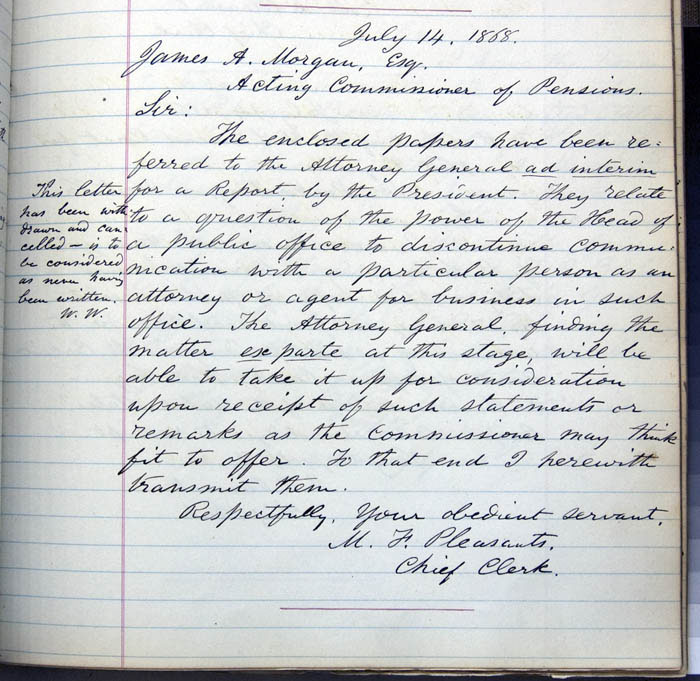 July 14, 1868.
James A. Morgan, Esq.
Acting Commissioner of Pensions.
Sir:
The enclosed papers have been re-
ferred to the Attorney General ad interim
for a Report by the President. They relate
to a question of the power of the Head of
a public office to discontinue commu-
nication with a particular person as an
attorney or agent for business in such
office. The Attorney General, finding the
matter ex parte at this stage, will be
able to take it up for consideration
upon receipt of such statements or
remarks as the Commissioner may think
fit to offer. To that end I herewith
transmit them.
Respectfully, Your obedient servant,
M. F. Pleasants.
Chief Clerk.
This letter
has been with
drawn and can
celled — is to
be considered
as never having
been written.
W. W.